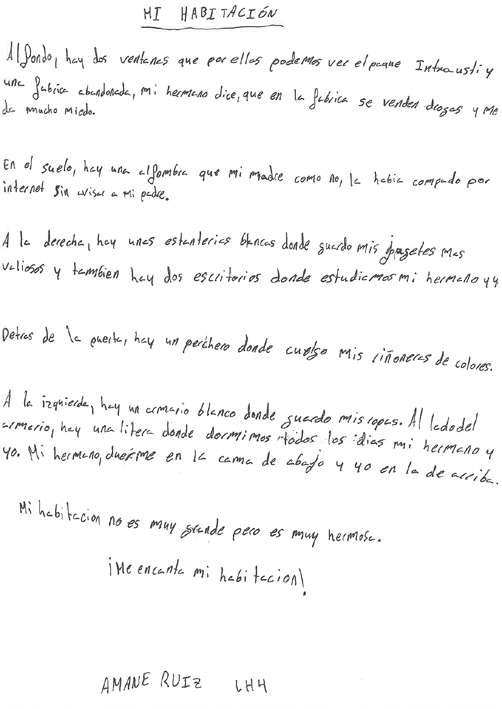 MI HABITACIÓN
Al fondo, hay dos ventanas que por ellas podemos ver el parque Intxausti y
una fabrica abandonada, mi hermano dice, que en la fabrica se venden drogas y me
da mucho miedo.
En el suelo, hay una alfombra que mi madre como no, la habia comprado por
internet sin avisar a mi padre.
A la derecha, hay unas estanterias blancas donde guardo mis juegetes mas
valiosos y tambien hay dos escritorios donde estudiamos mi hermano y yo
Detras de la puerta, hay un perchero donde cuelgo mis riñoneras de colores.
A la izquierda, hay un armario blanco donde guardo mis ropas. Al lado del
armario, hay una litera donde dormimos todos los dias mi hermano y
yo. Mi hermano, duerme en la cama de abajo y yo en la de arriba.
Mi habitacion no es muy grande pero es muy hermosa.
¡Me encanta mi habitacion!
AMANE RUIZ LH4